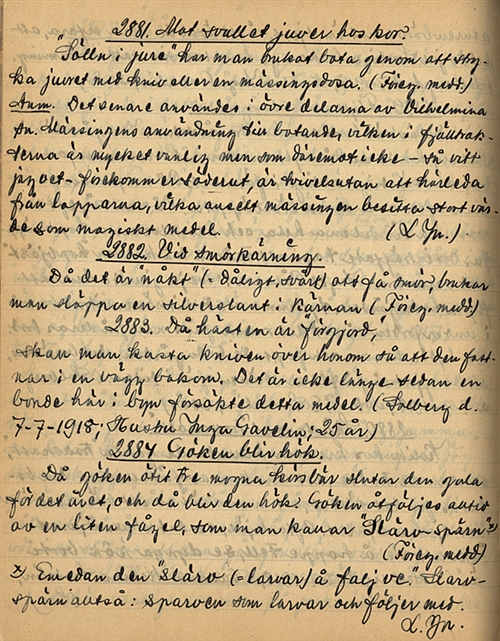 2881. Mot svullet juver hos kor.
"Sölln i jure" har man brukat bota genom att stry-
ka juvret med kniv eller en mässingsdosa. (Föreg. medd.)
Anm. Det senare användes i övre delarna av Vilhelmina
sn. Mässingens användning till botande, vilken i fjälltrak-
terna är mycket vanlig men som däremot icke - så vitt
jag vet - förekommer söderut, är tvivelsutan att härleda
från lapparna, vilka ansett mässingen besitta stort vär-
de som magiskt medel. (L. Yn.)
2882. Vid smörkärning.
Då det är "nåkt" (= dåligt, svårt) att få smör, brukar
man släppa en silverslant i kärnan (Föreg. medd)
2883. Då hästen är förgjord,
skall man kasta kniven över honom så att den fast-
nar i en vägg bakom. Det är icke länge sedan en
bonde här i byn försökte detta medel. (Solberg d.
7-7-1918, Hustru Inga Gavelin, 25 år)
2884 Göken blir hök.
Då göken ätit tre mogna körsbär slutar den gala
för det året, och då blir den hök. Göken åtföljes alltid
av en liten fågel, som man kallar "Slärv-spärn" x)
(Föreg. medd)
x) Emedan den "slärv (= larvar) å falj ve." Slarv-
spärn alltså: sparven som larvar och följer med.
L. Yn.